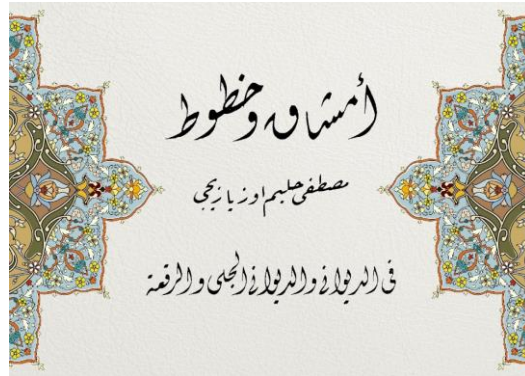 أمشاق وخطوط
مصطفى حليم اوزيازيجي
في الديواني والديواني الجلي والرقعة